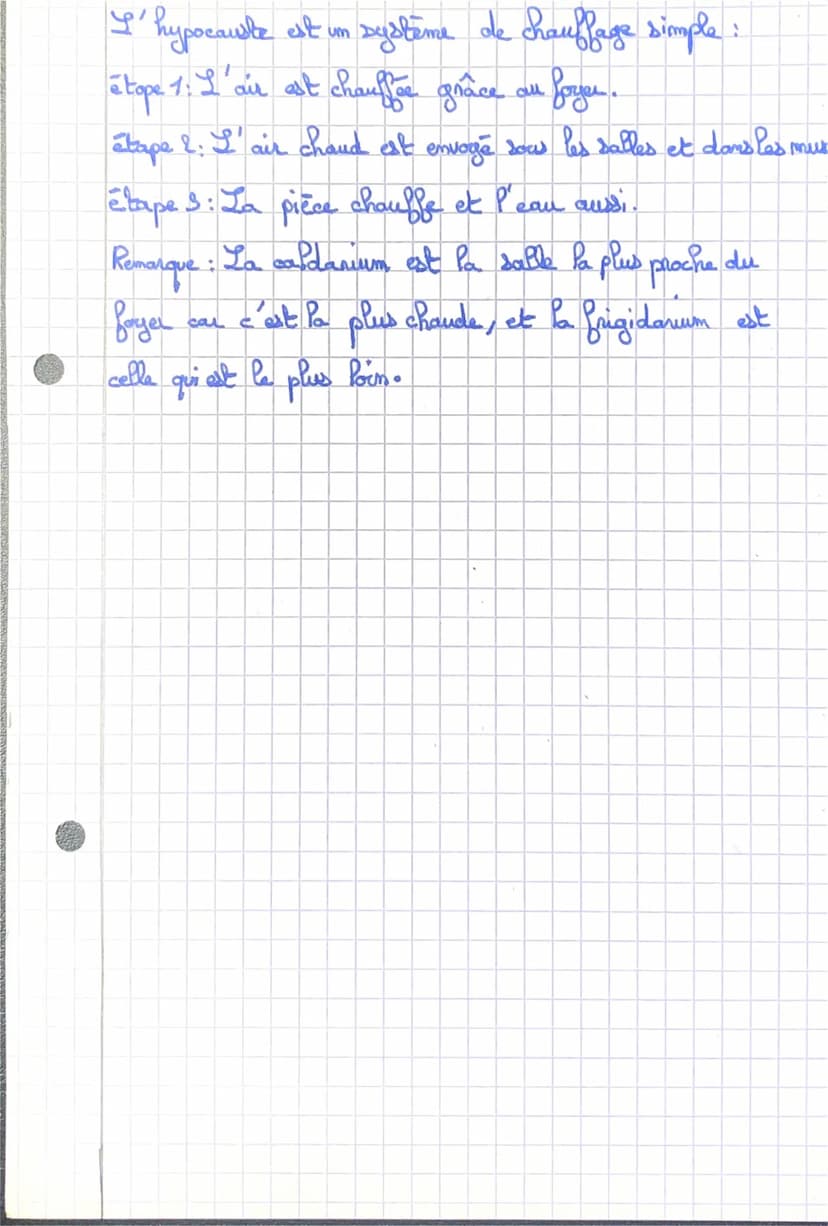 L'hypocauste est un système de chauffage simple :
étape 1 : L'air est chauffée grâce au foyer.
étape 2 : L'air chaud est envoyé sous les salles et dans les murs
étape 3 : La pièce chauffe et l'eau aussi.
Remarque : La caldarium est la salle la plus proche du
foyer car c'est la plus chaude, et la frigidarium est
celle qui est le plus loin.